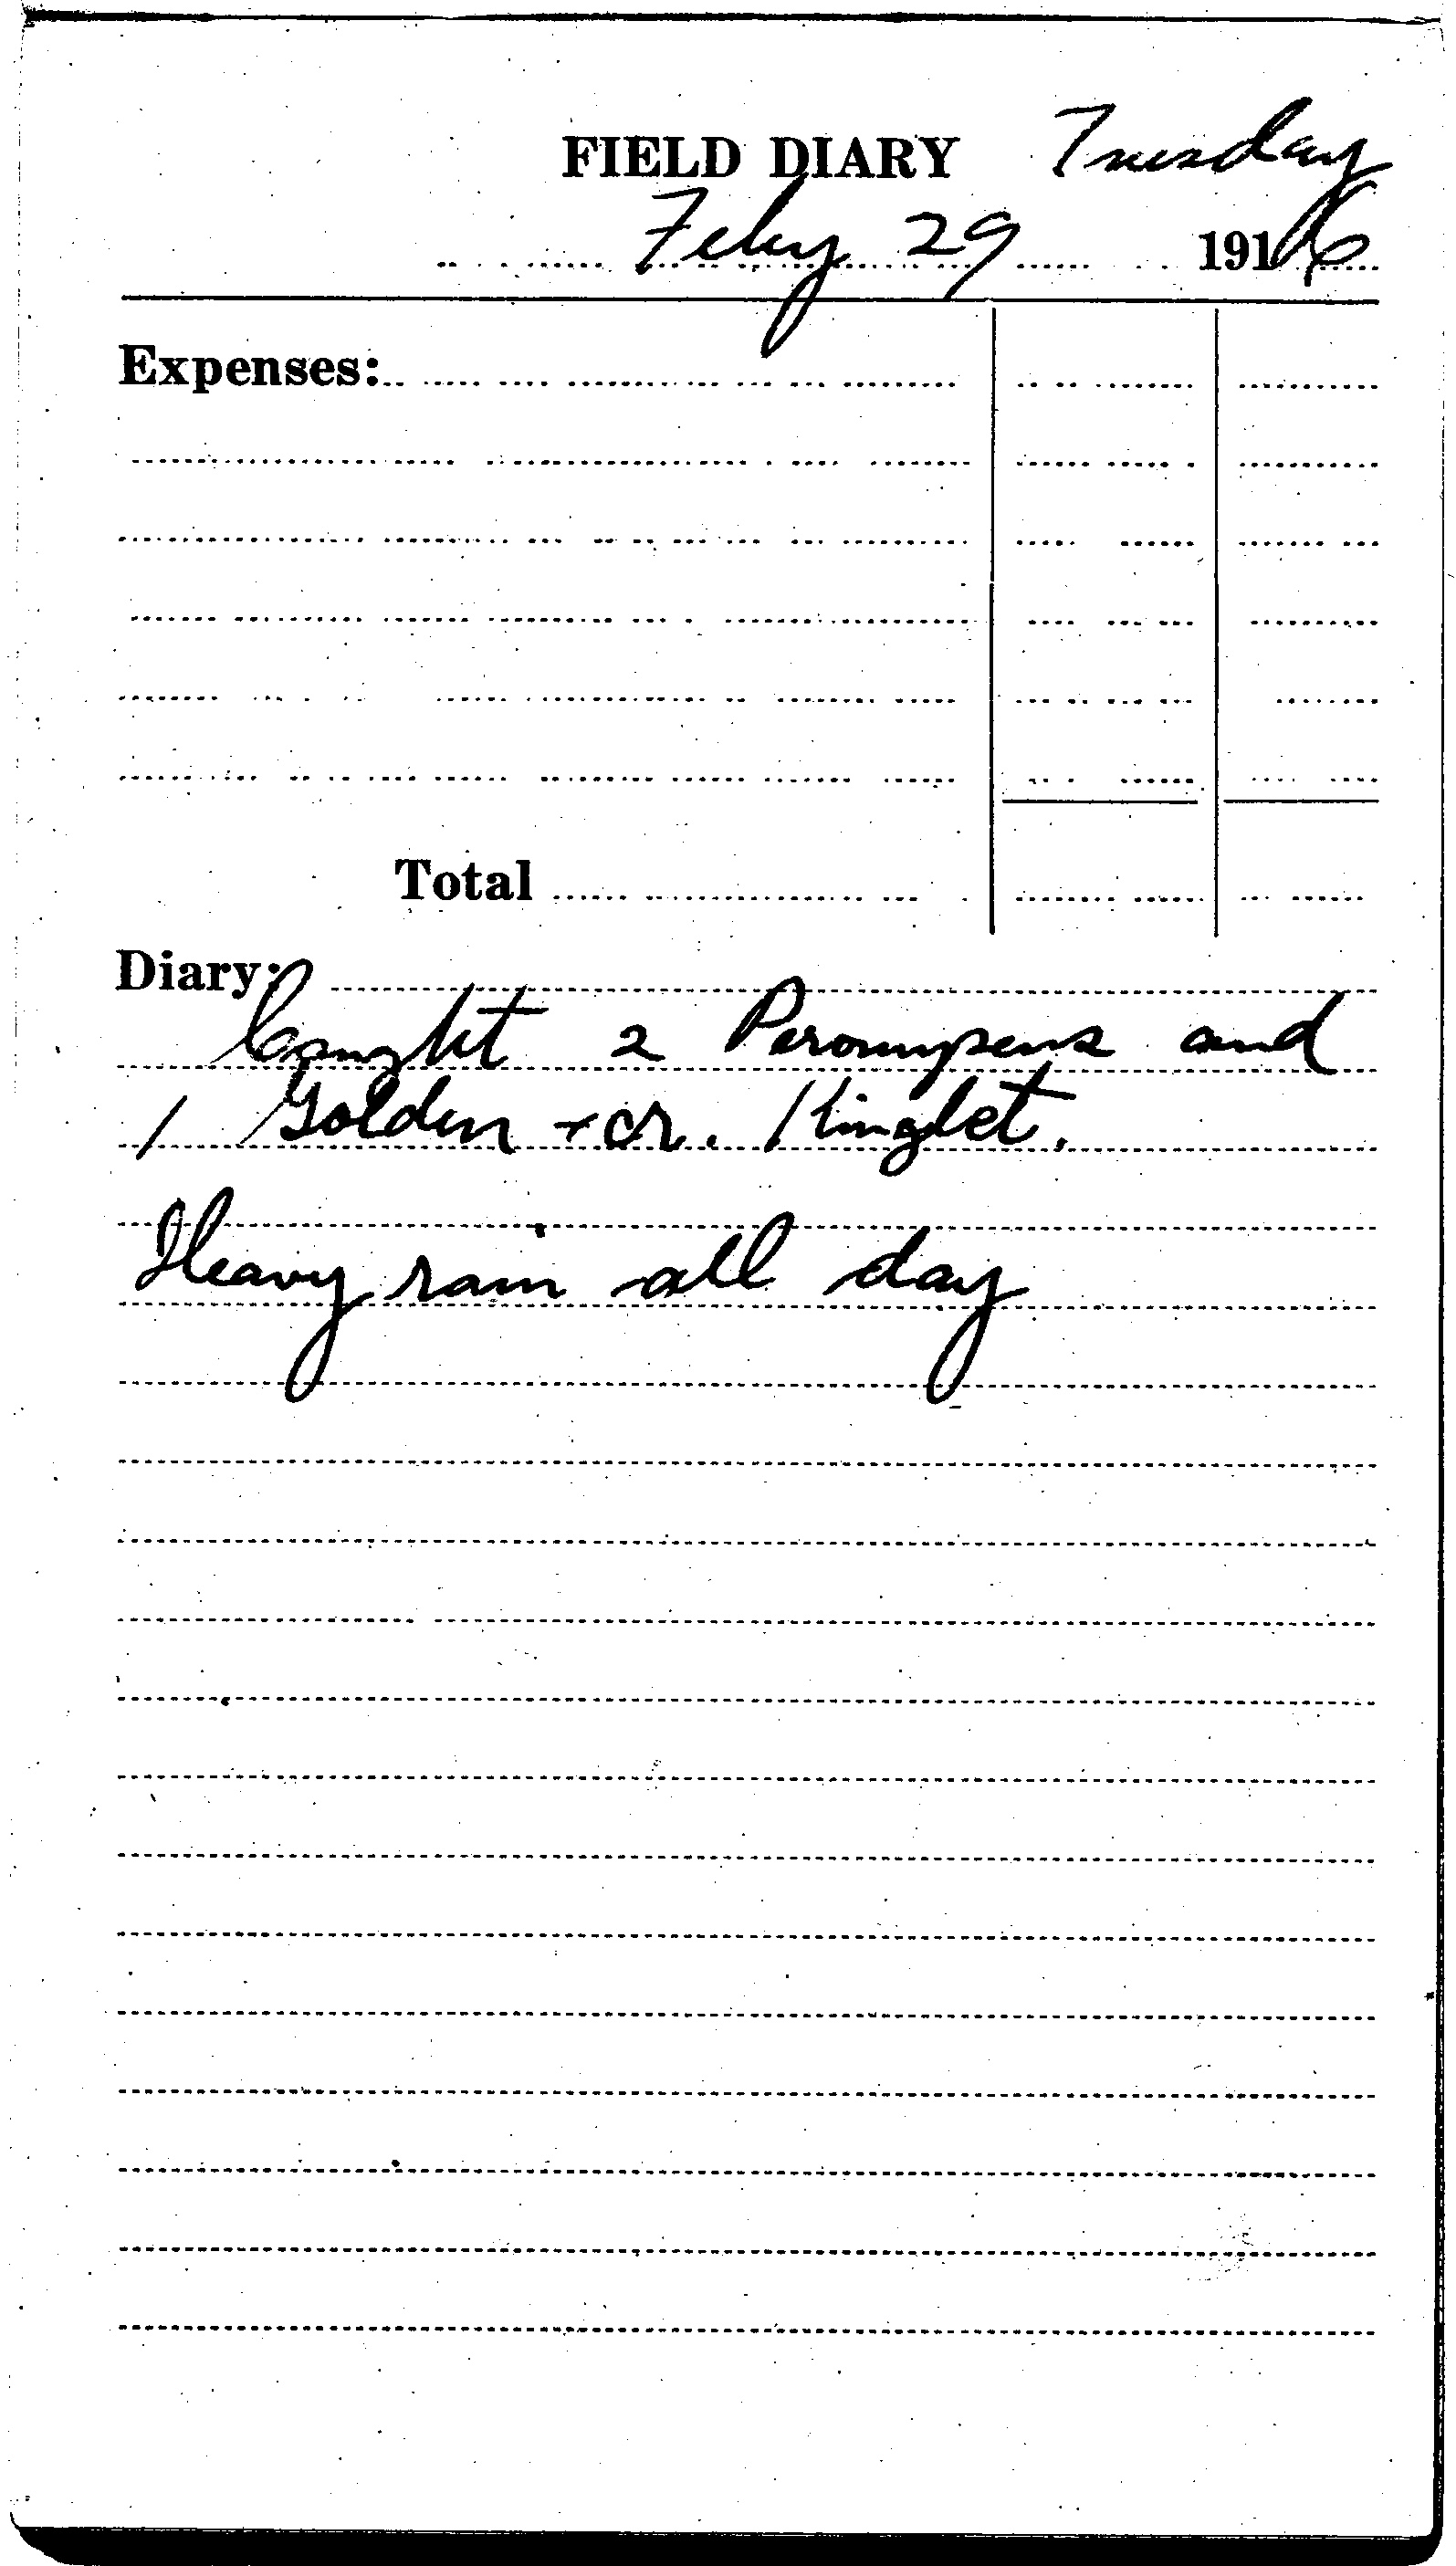 FIELD DIARY Tuesday
Feby 29 1916
Expenses:
Total
Diary:
Caught 2 Peromyscus and
1 Golden-cr. Kinglet.
Heavy rain all day